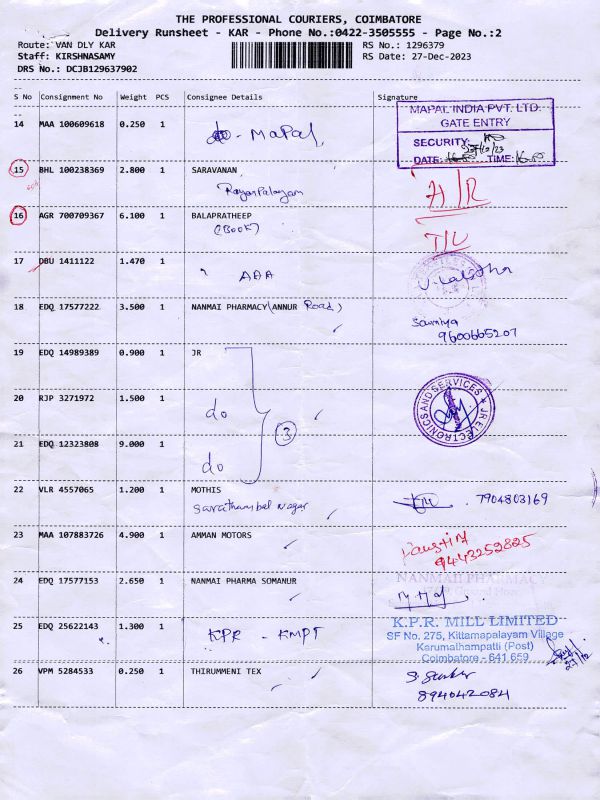 THE PROFESSIONAL COURIERS, COIMBATORE
Delivery Runsheet - KAR - Phone No.:0422-3505555 - Page No.:2
Route: VAN DLY KAR RS No.: 1296379
Staff: KIRSHNASAMY RS Date: 27-Dec-2023
DRS No.: DCJB129637902
S No Consignment No Weight PCS Consignee Details Signature
14 MAA 100609618 0.250 1 do - Mapal
MAPAL INDIA PVT. LTD.
GATE ENTRY
SECURITY:
DATE: 27/12/23 TIME:
15 BHL 100238369 2.800 1 SARAVANAN
Rayarpalayam
16 AGR 700709367 6.100 1 BALAPRATHEEP
(BOOK)
17 DBU 1411122 1.470 1 AAA
18 EDQ 17577222 3.500 1 NANMAI PHARMACY (ANNUR Road)
Sowmiya
9600665207
19 EDQ 14989389 0.900 1 JR
20 RJP 3271972 1.500 1 do
3
JR ELECTRONICS AND SERVICES
21 EDQ 12323808 9.000 1 do
22 VLR 4557065 1.200 1 MOTHIS
Sarathambal Nagar
7904803169
23 MAA 107883726 4.900 1 AMMAN MOTORS
9443252825
24 EDQ 17577153 2.650 1 NANMAI PHARMA SOMANUR
NANMAI PHARMACY
25 EDQ 25622143 1.300 1 KPR - KMPT
K.P.R. MILL LIMITED
SF No. 275, Kittamapalayam Village
Karumathampatti (Post)
Coimbatore - 641 659
26 VPM 5284533 0.250 1 THIRUMMENI TEX
894042084